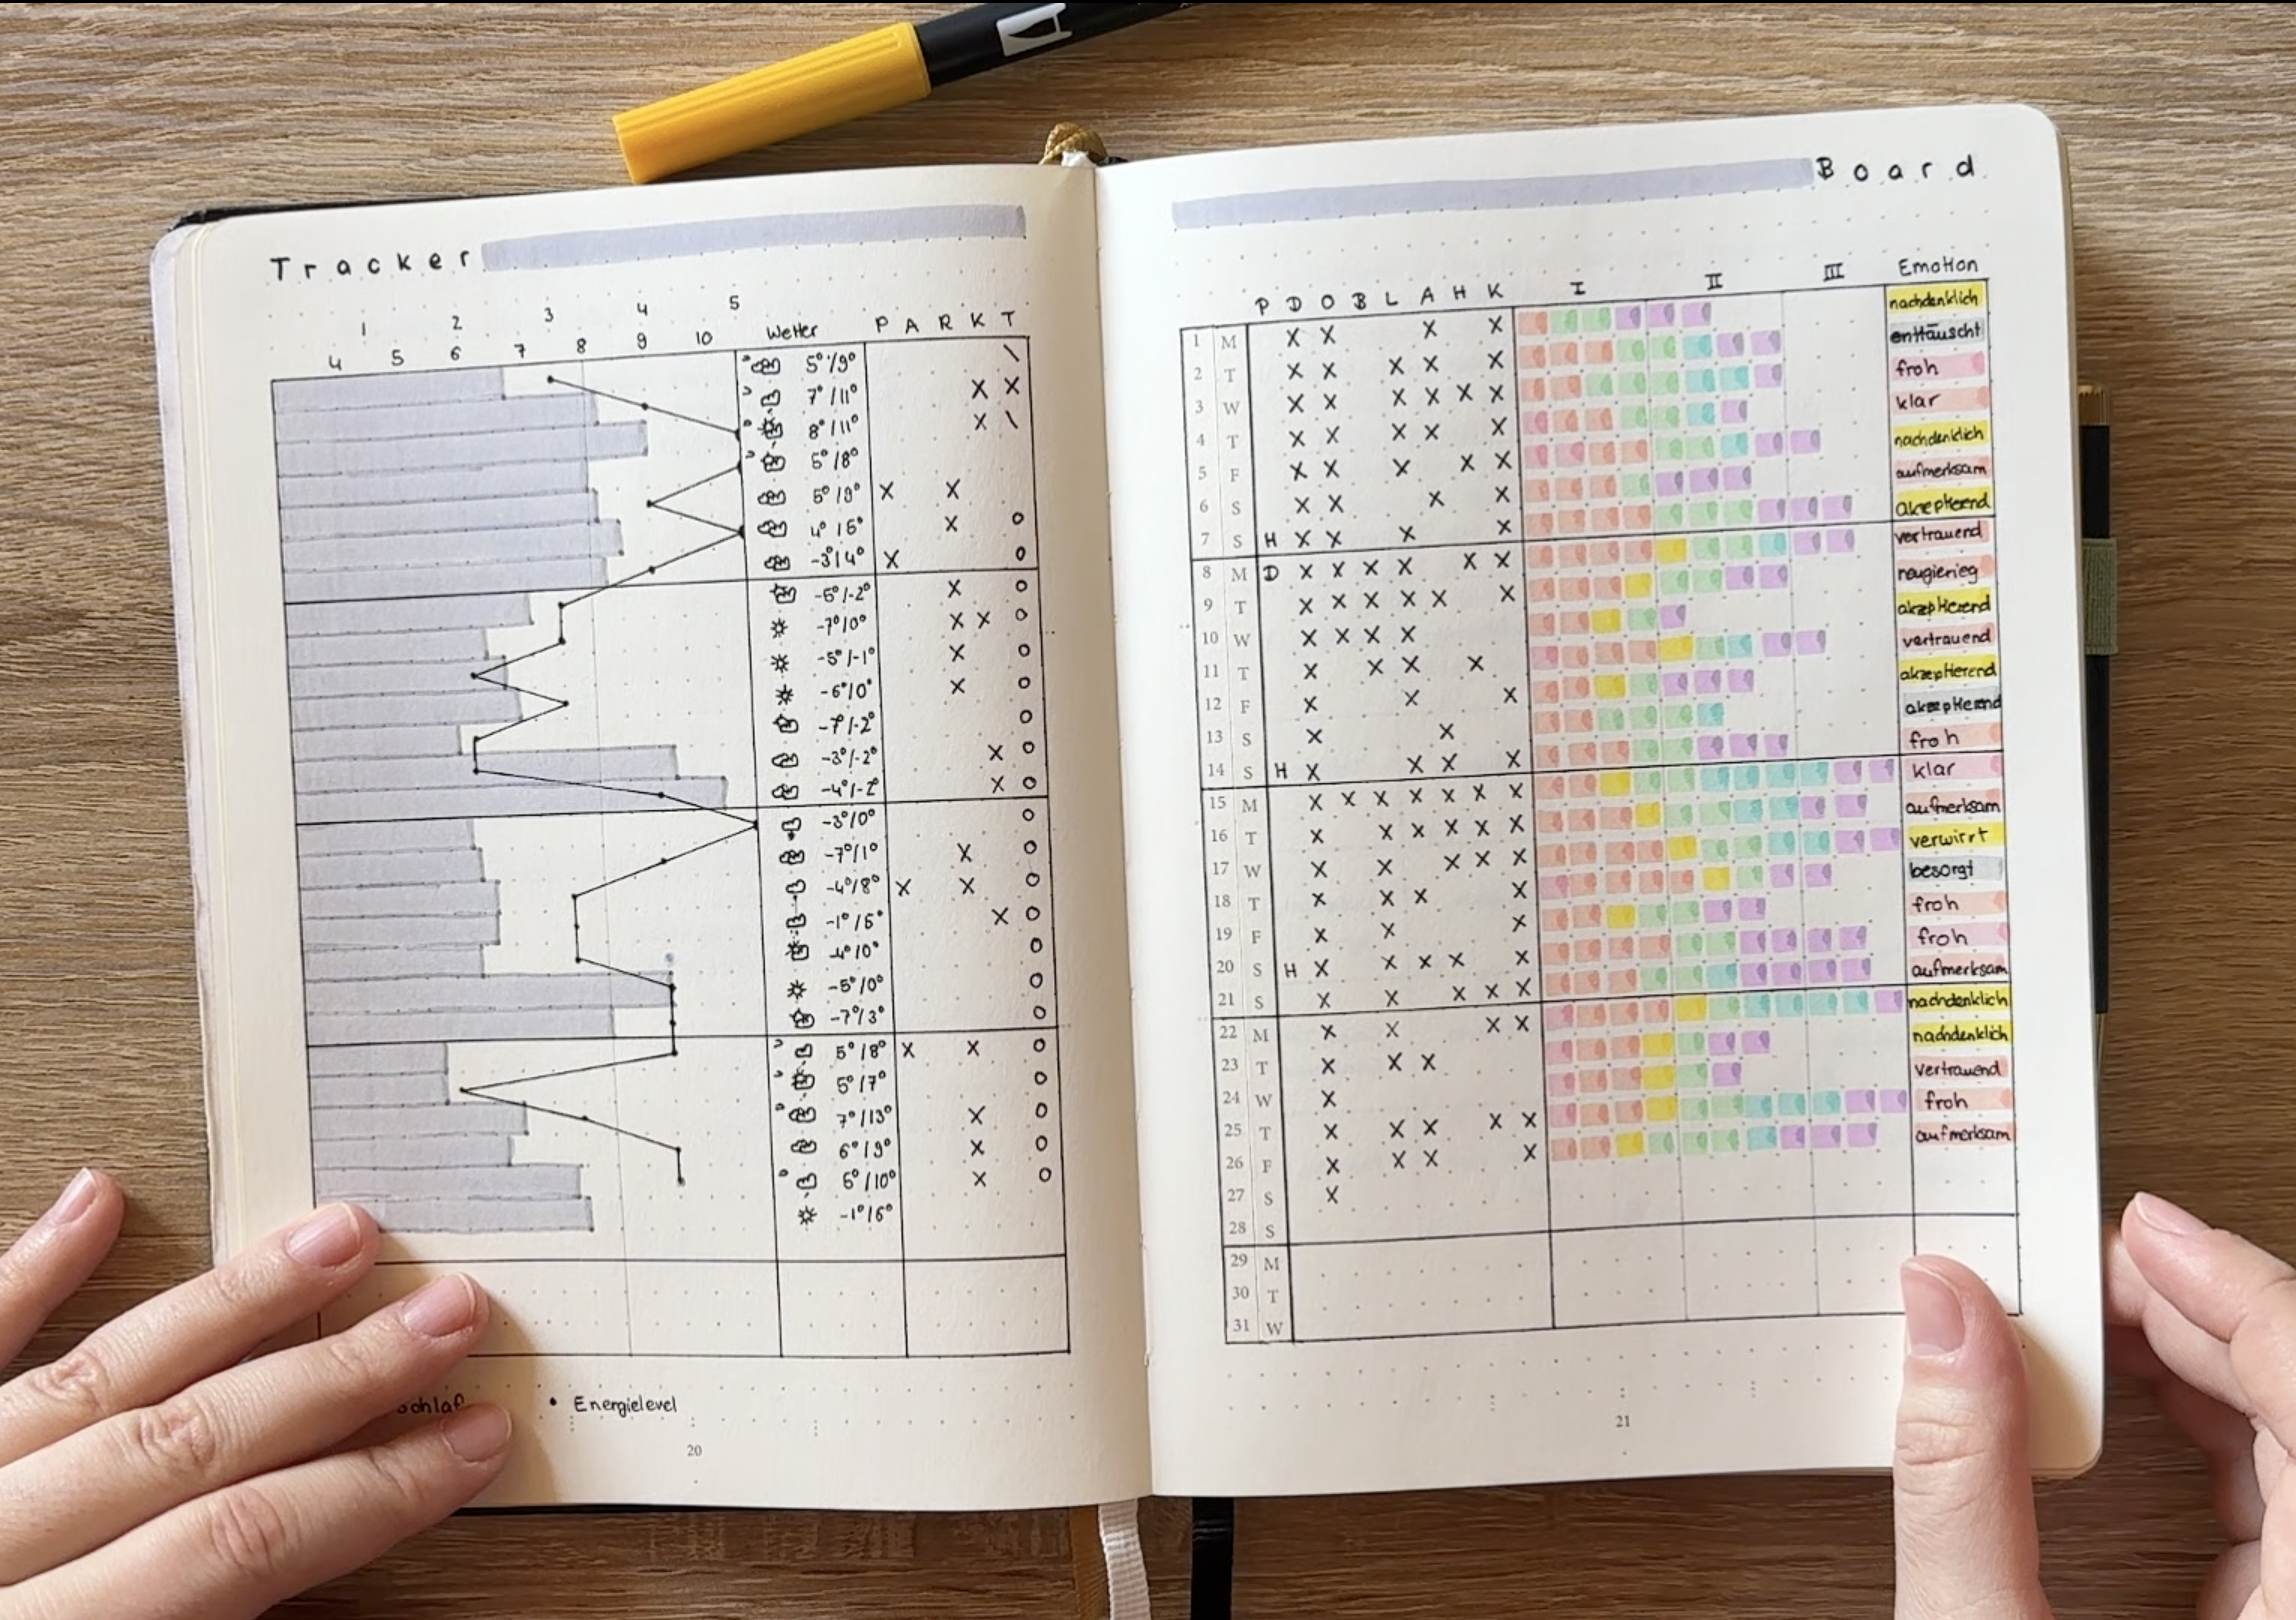 Tracker
1 2 3 4 5
4 5 6 7 8 9 10 Wetter P A R K T
5°/9° \
7°/11° X X
8°/11° X \
5°/8°
5°/9° X X
4°/5° X O
-3°/4° X O
-5°/-2° X O
-7°/0° X X O
-5°/-1° X O
-6°/0° X O
-7°/-2° O
-3°/-2° X O
-4°/-2° X O
-3°/0° O
-7°/1° X O
-4°/8° X X O
-1°/6° X O
-4°/0° O
-5°/0° O
-7°/3° O
5°/8° X X O
5°/7° O
7°/13° X O
6°/9° X O
5°/10° X O
-1°/6°
Schlaf • Energielevel
20
Board
P D O B L A H K I II III Emotion
1 M X X X X nachdenklich
2 T X X X X X enttäuscht
3 W X X X X X X froh
4 T X X X X X klar
5 F X X X X X nachdenklich
6 S X X X X aufmerksam
7 S H X X X X akzeptierend
8 M D X X X X X X vertrauend
9 T X X X X X X neugierieg
10 W X X X X akzeptierend
11 T X X X X vertrauend
12 F X X X akzeptierend
13 S X X akzeptierend
14 S H X X X X froh
15 M X X X X X X X klar
16 T X X X X X X aufmerksam
17 W X X X X X verwirrt
18 T X X X X besorgt
19 F X X X froh
20 S H X X X X X froh
21 S X X X X X aufmerksam
22 M X X X X nachdenklich
23 T X X X nachdenklich
24 W X vertrauend
25 T X X X X X froh
26 F X X X X aufmerksam
27 S X
28 S
29 M
30 T
31 W
21